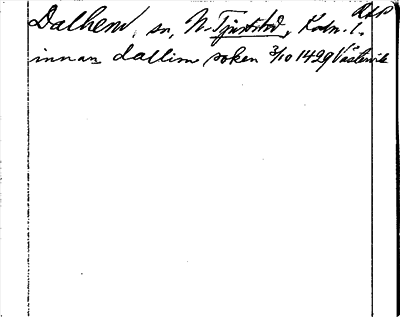 RAP
Dalhem, sn, N. Tjusts hd, Kalm. l.
innan dallim soken 3/10 1429 Västervik